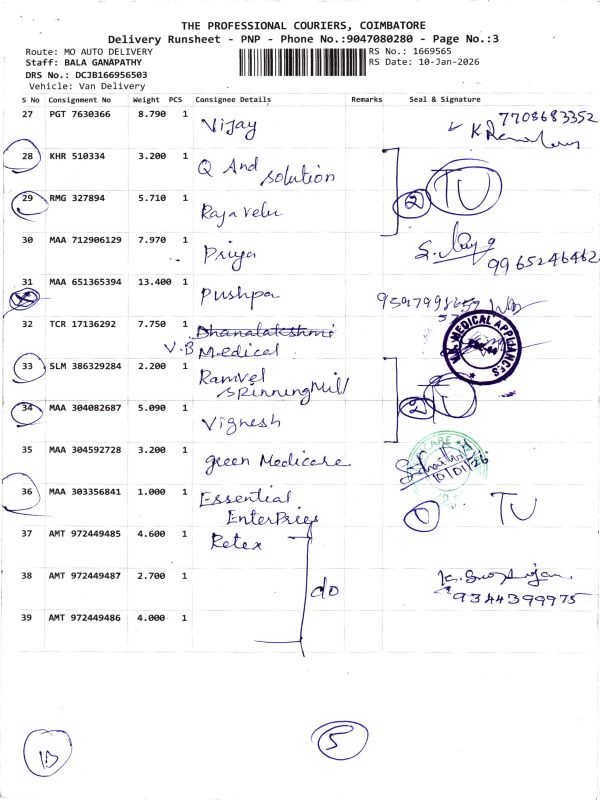 THE PROFESSIONAL COURIERS, COIMBATORE
Delivery Runsheet - PNP - Phone No.:9047080280 - Page No.:3
Route: MO AUTO DELIVERY
RS No.: 1669565
Staff: BALA GANAPATHY
RS Date: 10-Jan-2026
DRS No.: DCJB166956503
Vehicle: Van Delivery
S No Consignment No Weight PCS Consignee Details Remarks Seal & Signature
27 PGT 7630366 8.790 1 Vijay 7708683352
28 KHR 510334 3.200 1 Q And solution
29 RMG 327894 5.710 1 Rajavelu 2 TU
30 MAA 712906129 7.970 1 Priya 9965246462
31 MAA 651365394 13.400 1 Pushpa
32 TCR 17136292 7.750 1 Dhanalakshmi
V.B Medical
MEDICAL APPLIANCES
33 SLM 386329284 2.200 1 Ramvel
Spinning Mill
34 MAA 304082687 5.090 1 Vignesh 2 TU
35 MAA 304592728 3.200 1 green Medicare
CARE
10/01/26
36 MAA 303356841 1.000 1 Essential
EnterPries TU
37 AMT 972449485 4.600 1 Retex
38 AMT 972449487 2.700 1 do
9344399975
39 AMT 972449486 4.000 1
13 5